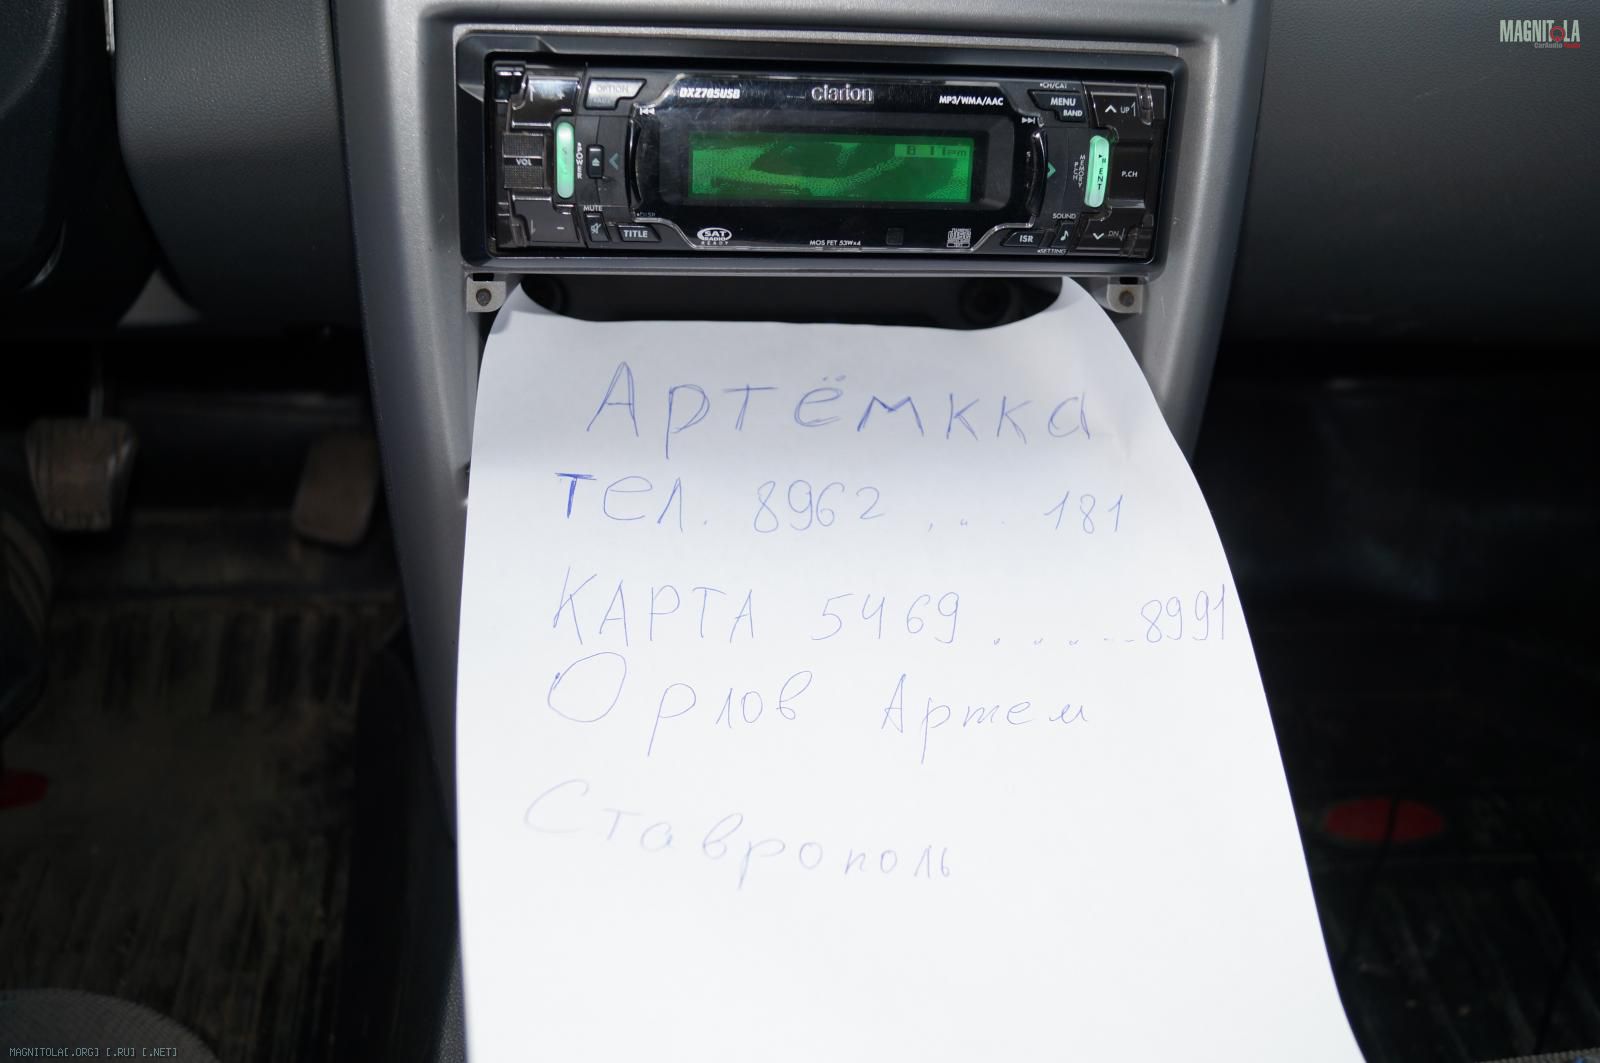 MAGNITOLA
CarAudio
OPTION
DXZ785USB
clarion
MP3/WMA/AAC
CH/CAT
MENU
BAND
UP
8:11PM
VOL
POWER
P.CH
ENT
MUTE
DISP
TITLE
SAT
RADIO
READY
MOS FET 53W×4
SOUND
ISR
SETTING
DN
Артёмкка
тел. 8962 .... 181
КАРТА 5469 ......8991
Орлов Артем
Ставрополь
MAGNITOLA[.ORG] [.RU] [.NET]